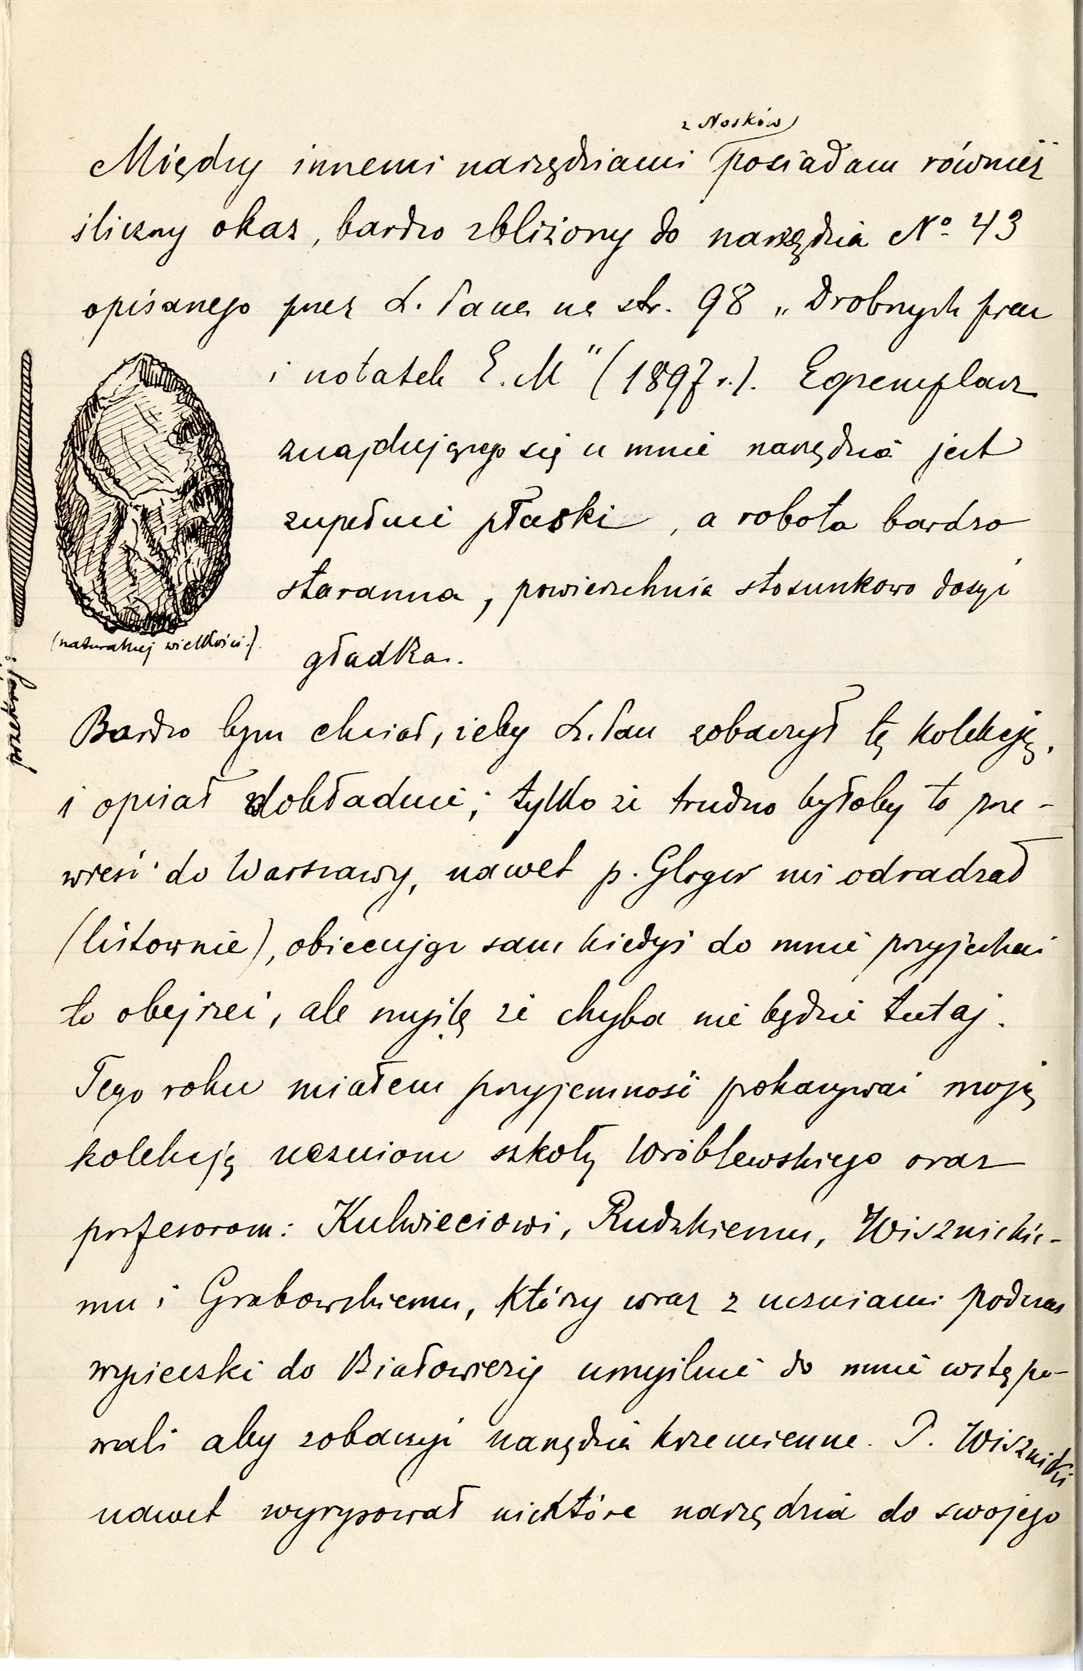 z Nosków
Między innemi narzędziami posiadam również
śliczny okaz, bardzo zbliżony do narzędzia No 43
opisanego przez Sz. Pana na str. 98 „Drobnych prac
i notatek E. M" (1897 r.). Egzemplarz
znajdującego się u mnie narzędzia jest
zupełnie płaski, a robota bardzo
staranna, powierzchnia stosunkowo dosyć
(naturalnej wielkości.)
gładka.
Bardzo bym chciał, żeby Sz. Pan zobaczył tę kolekcję,
i opisał dokładnie; tylko że trudno byłoby to prze-
wieść do Warszawy, nawet p. Gloger mi odradzał
(listownie), obiecując sam kiedyś do mnie przyjechać
to obejrzeć, ale myślę że chyba nie będzie tutaj.
Tego roku miałem przyjemność pokazywać moją
kolekcję uczniom szkoły Wróblewskiego oraz
profesorom: Kulwieciowi, Rudzkiemu, Wisznickie-
mu i Grabowskiemu, którzy wraz z uczniami podczas
wycieczki do Białowieży umyślnie do mnie wstępo-
wali aby zobaczyć narzędzia krzemienne. P. Wisznicki
nawet wyrysował niektóre narzędzia do swojego